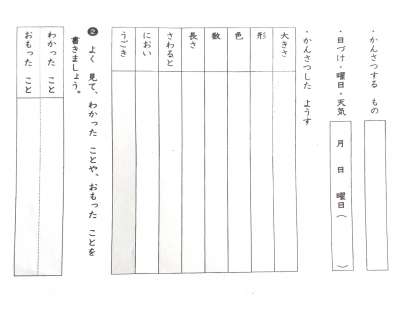 ・かんさつする もの
・日づけ・曜日・天気
月 日 曜日( )
・かんさつした ようす
大きさ
形
色
数
長さ
さわると
におい
うごき
❷ よく 見て、わかった ことや、おもった ことを
書きましょう。
わかった こと
おもった こと